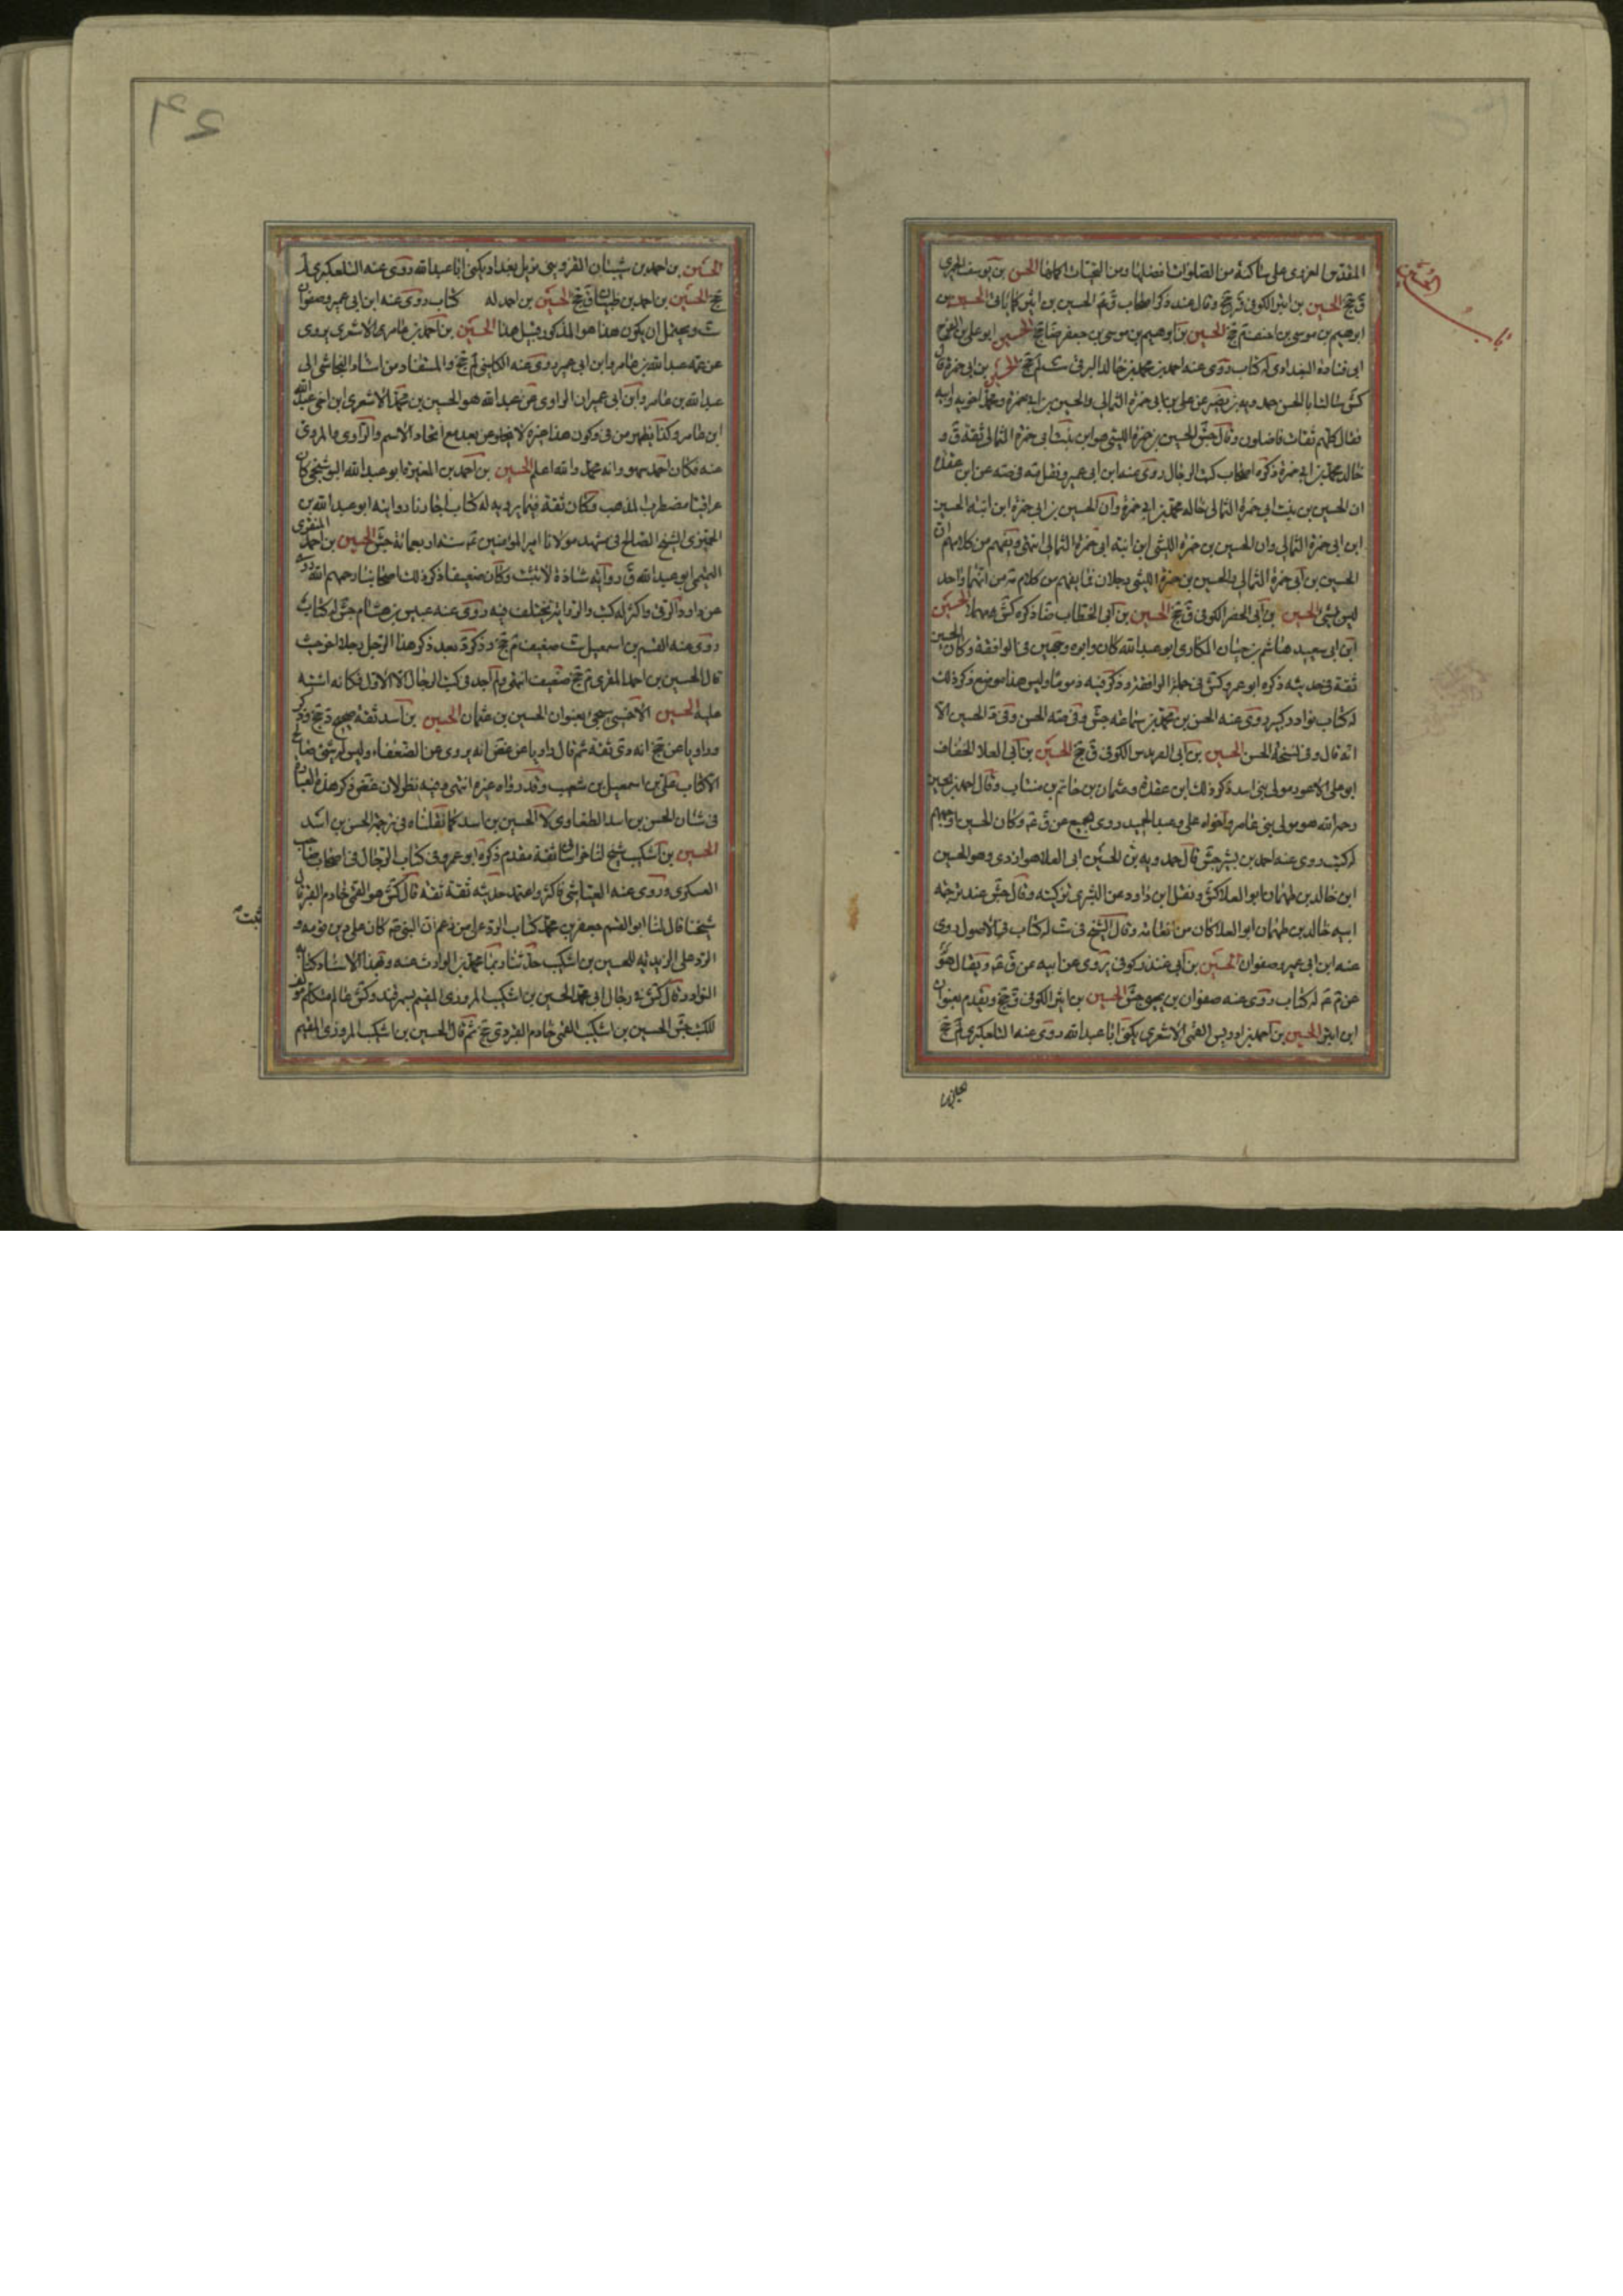 باب
المقدس الغروى على ساكنه من الصلوات افضلها ومن التحيات اكملها الحسن بن يوسف
ق جخ الحسين بن ابتر الكوفى قر جخ وقال عند ذكر اصحاب ق الحسين بن ابتر كاباقى الحسين بن
ابرهيم بن موسى بن احنف م جخ الحسين بن ابرهيم بن موسى بن جعفر ضا جخ الحسين ابو على بن الفرج
ابى قتادة البغدادى له كتاب روى عنه احمد بن محمد بن خالد البرقى ست لم جخ الحسين بن ابى حمزة قال
كش سالت ابا الحسن حمدويه بن نصير عن على بن ابى حمزة الثمالى والحسين بن ابى حمزة ومحمد اخويه وابيه
فقال كلهم ثقات فاضلون وقال جش الحسين بن حمزة الليثى هو ابن بنت ابى حمزة الثمالى ثقة ق و
خاله محمد بن ابى حمزة ذكره اصحاب كتب الرجال روى عنه ابن ابى عمير ونقل مه فى صه عن ابن عقدة
ان الحسين بن بنت ابى حمزة الثمالى خاله محمد بن ابى حمزة وان الحسين بن ابى حمزة ابن ابنة الحسين
ابن ابى حمزة الثمالى وان الحسين بن حمزة الليثى ابن ابنة ابى حمزة الثمالى انتهى ويفهم من كلامهم ان
الحسين بن ابى حمزة الثمالى والحسين بن حمزة الليثى رجلان فما يفهم من كلام من انهما واحد
ليس بشئ الحسين بن ابى الخضر الكوفى ق جخ الحسين بن ابى الخطاب ضا ذكره كش مهملا الحسين
ابن ابى سعيد هاشم بن حيان المكارى ابو عبد الله كان وابوه وجهين فى الواقفة وكان الحسين
ثقة فى حديثه ذكره ابو عمرو كش فى جملة الواقفة وذكر فيه ذموما وليس هذا موضع ذكر ذلك
له كتاب نوادر كبير روى عنه الحسن بن محمد بن سماعة جش وفى صه الحسن وفى د الحسين الا
انه قال وفى نسخة الحسن الحسين بن ابى العرندس الكوفى ق جخ الحسين بن ابى العلا الخفاف
ابو على الاعور مولى بنى اسد ذكر ذلك ابن عقدة وعثمان بن حاتم بن منتاب وقال احمد بن الحسين
رحمه الله هو مولى بنى عامر واخواه على وعبد الحميد روى الجميع عن ق وكان الحسين اوجههم
له كتب روى عنه احمد بن بشير جش قال حمدويه ثق الحسين ابى العلا هو ازدى وهو الحسين
ابن خالد بن طهمان ابو العلا كش ونقل ابن داود عن البشرى تزكيته وقال جش عند ترجمة
ابيه خالد بن طهمان ابو العلا كان من العامة وقال الشيخ فى ست له كتاب فى الاصول روى
عنه ابن ابى عمير وصفوان الحسين بن ابى غندر كوفى يروى عن ابيه عن ق ويقال هو
عن م له كتاب روى عنه صفوان بن يحيى جش الحسين بن اثير الكوفى ق جخ وتقدم بعنوان
ابن ابتر الحسين بن احمد بن ادريس القمى الاشعرى يكنى ابا عبد الله روى عنه التلعكبرى لم جخ
الحسين بن احمد بن شيبان القزوينى نزيل بغداد يكنى ابا عبد الله روى عنه التلعكبرى لم
جخ الحسين بن احمد بن ظبيان ق جخ الحسين بن احمد له كتاب روى عنه ابن ابى عمير وصفوان
ست ويحتمل ان يكون هذا هو المذكور قبيل هذا الحسين بن احمد بن عامر الاشعرى يروى
عن عمه عبد الله بن عامر وابن ابى عمير روى عنه الكلينى لم جخ والمستفاد من اسناد النجاشى الى
عبد الله بن عامر وابن ابى عمير ان الراوى عن عبد الله هو الحسين بن محمد الاشعرى ابن اخى عبد الله
ابن عامر وكذا يظهر من فى وكون هذا غيره لا يخلو من بعد مع اتحاد الاسم والراوى والمروى
عنه فكان احمد سهو وانه محمد والله اعلم الحسين بن احمد بن المغيرة ابو عبد الله البوشنجى كان
عراقيا مضطرب المذهب وكان ثقة فيما يرويه له كتاب اجازنا روايته ابو عبد الله بن
الخمرى الشيخ الصالح فى مشهد مولانا امير المؤمنين سنة اربعمائة جش الحسين بن احمد المنقرى
التميمى ابو عبد الله ق روايته شاذة لا تثبت وكان ضعيفا ذكر ذلك اصحابنا رحمهم الله روى
عن داود الرقى واكثر له كتب والرواية تختلف فيه روى عنه عبيس بن هشام جش له كتاب
روى عنه القسم بن اسمعيل ست ضعيف م جخ وذكره بعد ذكر هذا الرجل رجلا اخر حيث
قال الحسين بن احمد المقرى م جخ ضعيف انتهى ولم اجد فى كتب الرجال الا الاول فكانه اشتبه
عليه الحسين الاحمسى سيجئ بعنوان الحسين بن عثمان الحسين بن اسد ثقة صحيح د جخ وذكر
راويا عن جخ انه دى ثقة ثم قال راويا عن غض انه يروى عن الضعفاء وليس له شئ صالح
الا كتاب على بن اسمعيل بن شعيب وقد رواه غيره انتهى وفيه نظر لان غض ذكر هذه العبارة
فى شان الحسن بن اسد الطفاوى لا الحسين بن اسد كما نقلناه فى ترجمة الحسن بن اسد
الحسين بن اشكيب شيخ لنا خراسانى ثقة مقدم ذكره ابو عمرو فى كتاب الرجال فى اصحاب صاحب
العسكرى وروى عنه العياشى فاكثر واعتمد حديثه ثقة ثقة قال كش هو القمى خادم القبر قال
ثبت
شيخنا قال لنا ابو القسم جعفر بن محمد كتاب الرد على من زعم ان النبى كان على دين قومه و
الرد على الزيدية للحسين بن اشكيب حدثنا بهما محمد بن الوارث عنه وبهذا الاسناد كتابه
النوادر وقال كش فى رجال ابى محمد الحسين بن اشكيب المروزى المقيم بسمرقند وكش عالم متكلم مؤلف
للكتب جش الحسين بن اشكيب القمى خادم القبر دى جخ ثم قال الحسين بن اشكيب المروزى المقيم